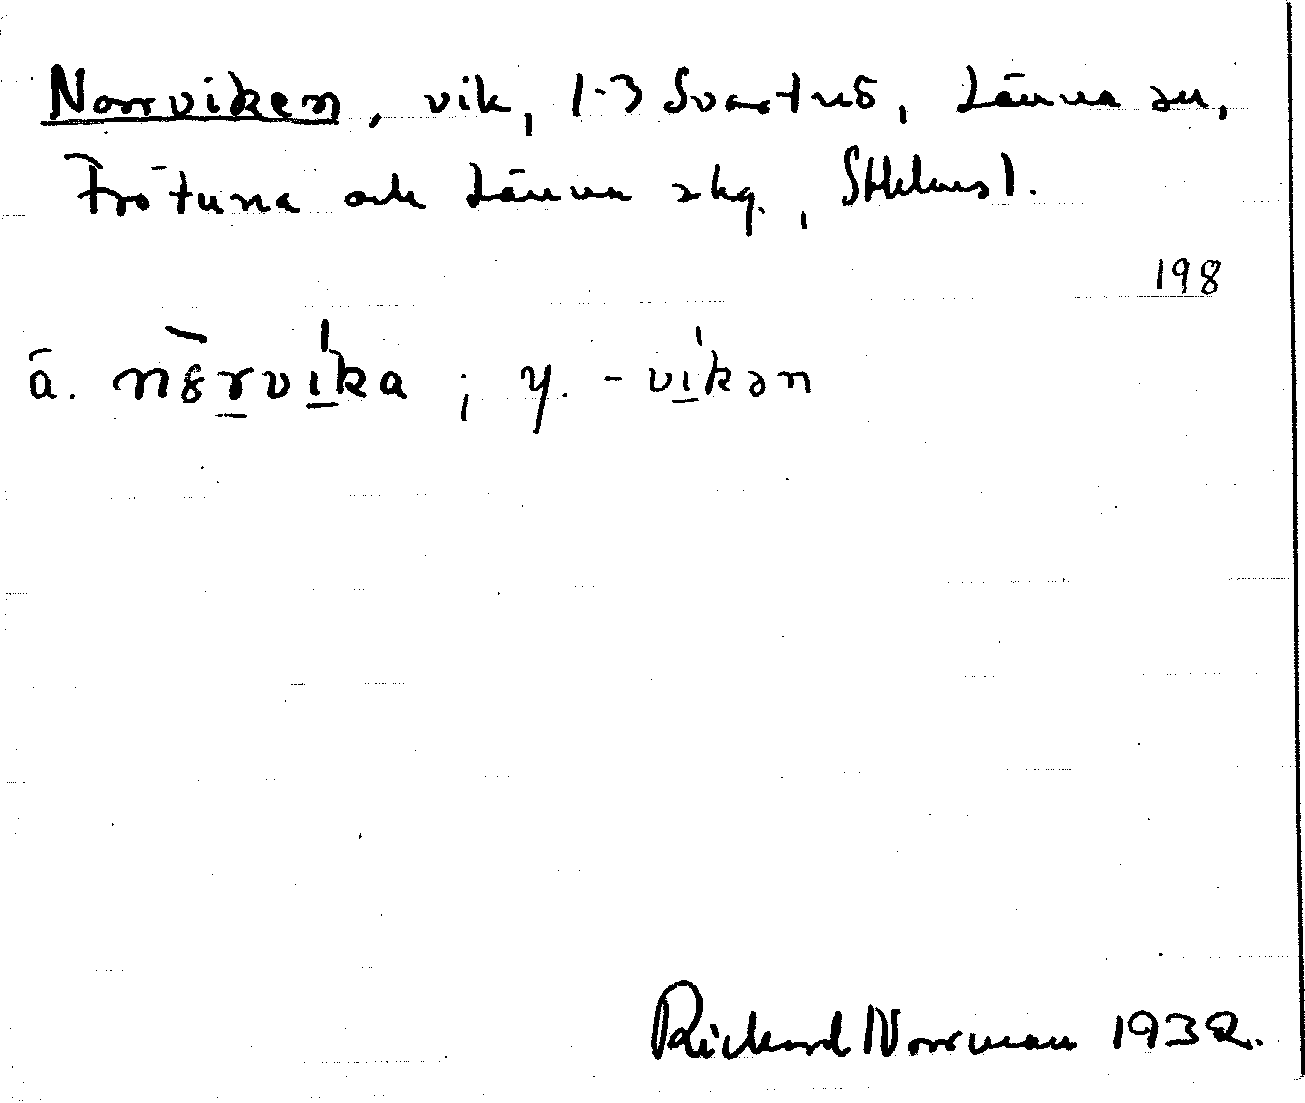 Norrviken, vik, 1-3 Svartnö, Länna sn,
Frötuna och Länna skg., Sthlms l.
198
ä. nȣ̀rvı̍ka ; y. -vı̍kən
Rickard Norrman 1932.